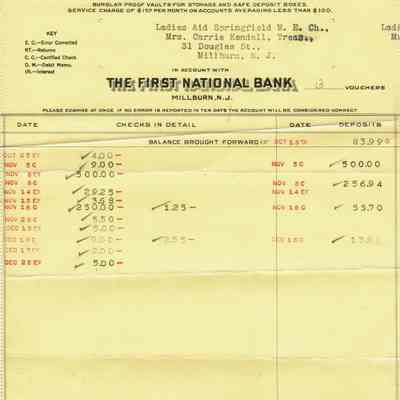 BURGLAR PROOF VAULTS FOR STORAGE AND SAFE DEPOSIT BOXES.
SERVICE CHARGE OF $1.00 PER MONTH ON ACCOUNTS AVERAGING LESS THAN $100.
KEY
E. C.-Error Corrected
RT.-Returns
C. C.-Certified Check
D. M.-Debit Memo.
IN.-Interest
Ladies Aid Springfield M. E. Ch.,
Mrs. Carrie Kendall, Treas.,
31 Douglas St.,
Millburn, N. J.
IN ACCOUNT WITH
THE FIRST NATIONAL BANK
MILLBURN, N.J.
3 VOUCHERS
PLEASE EXAMINE AT ONCE IF NO ERROR IS REPORTED IN TEN DAYS THE ACCOUNT WILL BE CONSIDERED CORRECT
DATE CHECKS IN DETAIL DATE DEPOSITS
BALANCE BROUGHT FORWARD OCT 83.99
OCT 25 4.00-
NOV 5 9.00- NOV 5 500.00
NOV 8 500.00-
NOV 8 256.94
NOV 14 29.25 NOV 14
NOV 15 3.68-
NOV 18 250.00- 1.25- NOV 18 55.70
NOV 29 5.50
DEC 13
DEC 2.55- DEC 18
DEC 17 2.00-
DEC 26 5.00-